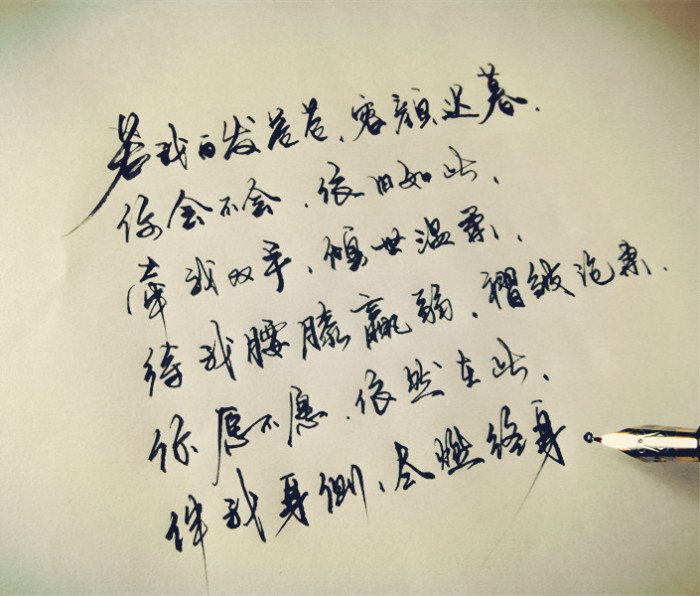 若我白发苍苍、容颜迟暮、
你会不会、依旧如此、
牵我双手、倾世温柔、
待我腰膝羸弱、褶皱沧桑、
你愿不愿、依然在此、
伴我身侧、尽燃终身。